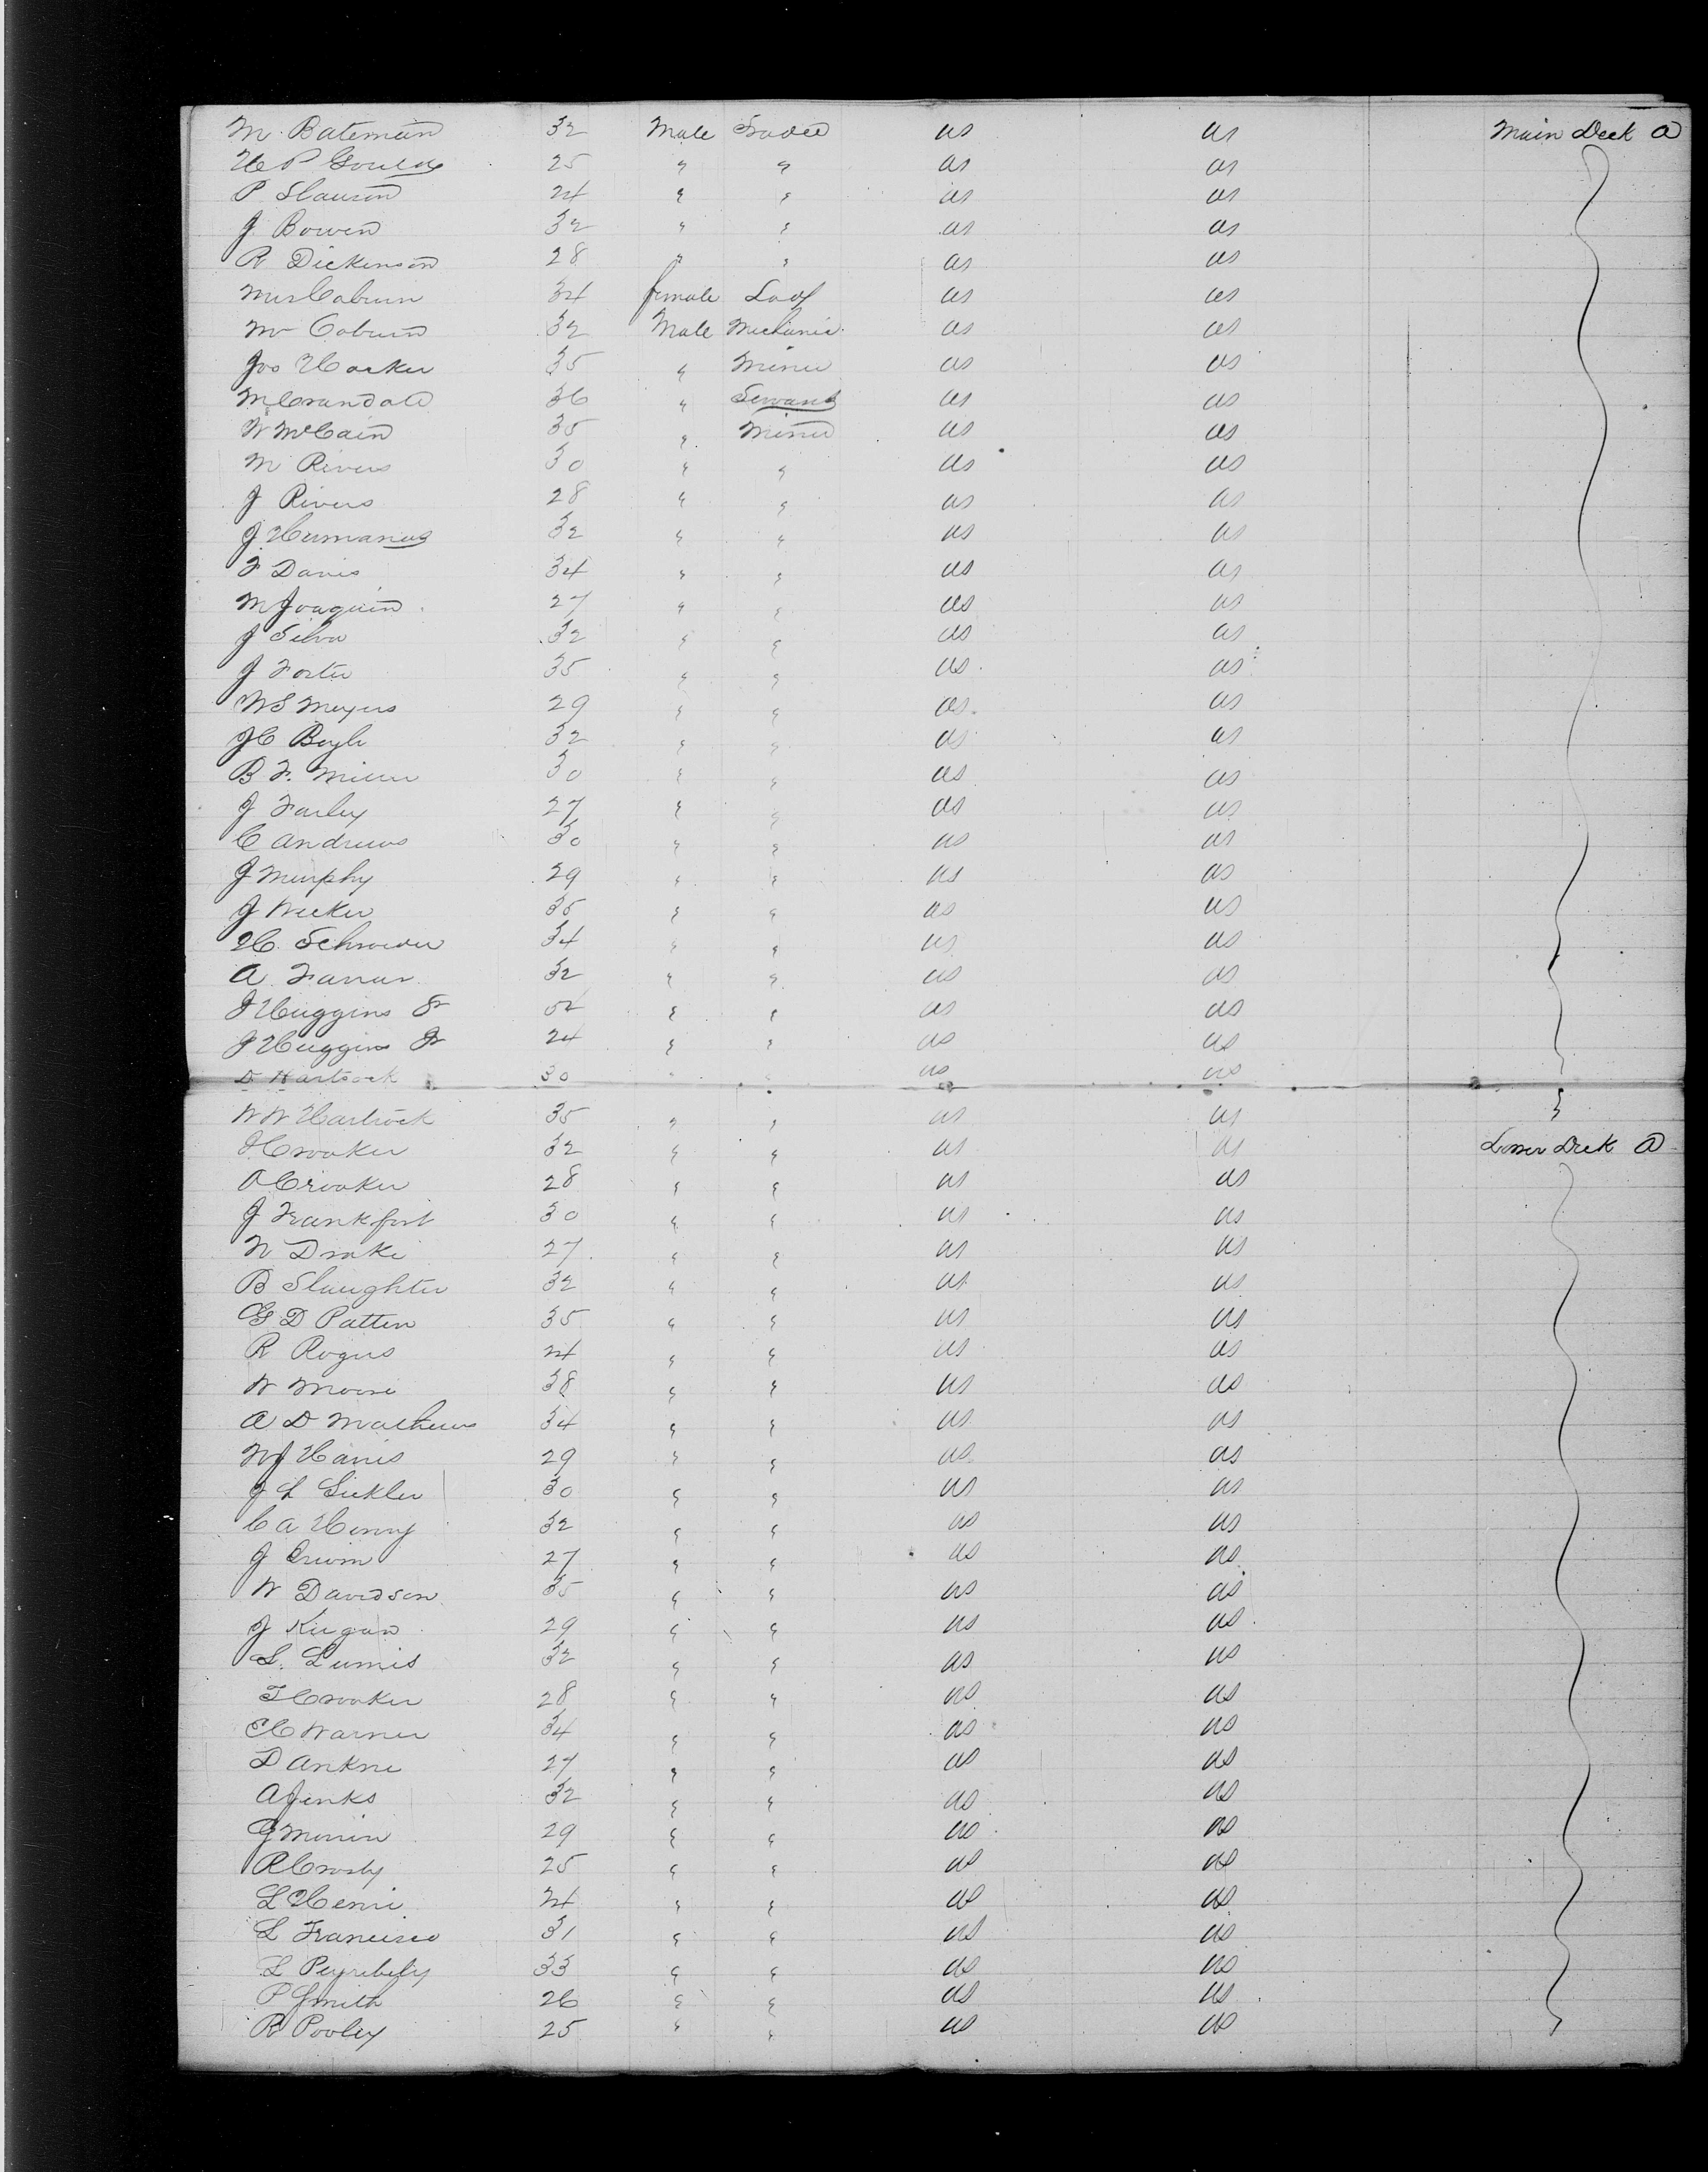 M Bateman 32 Male Trader us us Main Deck a
H P Gould 25 " " us us
P Slauson 24 " " us us
J Bowen 32 " " us us
R Dickenson 28 " " us us
Mrs Coburn 34 female Lady us us
Mr Coburn 32 Male Mechanic us us
Jos Hocker 35 " Miner us us
M Crandall 36 " Servant us us
W McCain 35 " Miner us us
M Rivers 30 " " us us
J Rivers 28 " " us us
J Hermanus 32 " " us us
F Davis 34 " " us us
M Joaquin 27 " " us us
J Silva 32 " " us us
J Foster 35 " " us us
W S Meyers 29 " " us us
J C Boyle 32 " " us us
B F. Miller 30 " " us us
J Farley 27 " " us us
C Andrews 30 " " us us
J Murphy 29 " " us us
J Weeker 35 " " us us
H. Schroeder 34 " " us us
A. Farrar 32 " " us us
J Huggins Sr 54 " " us us
J Huggins Jr 24 " " us us
D Hartsock 30 " " us us
W W Hartsock 35 " " us us
J Crooker 32 " " us us Lower Deck a
A Crooker 28 " " us us
J Frankfort 30 " " us us
N Drake 27 " " us us
B Slaughter 32 " " us us
G D Patten 35 " " us us
R Rogers 24 " " us us
W Moore 38 " " us us
A D Mathews 34 " " us us
W J Harris 29 " " us us
J L Sickler 30 " " us us
C A Henry 32 " " us us
J 27 " " us us
W Davidson 35 " " us us
J Keegan 29 " " us us
L. Lumis 32 " " us us
T Crooker 28 " " us us
E C Warner 34 " " us us
D Ankne 27 " " us us
A Jenks 32 " " us us
G Morrin 29 " " us us
R Crosby 25 " " us us
L Henri 24 " " us us
L Francisco 31 " " us us
L 33 " " us us
P Smith 26 " " us us
R Pooley 25 " " us us